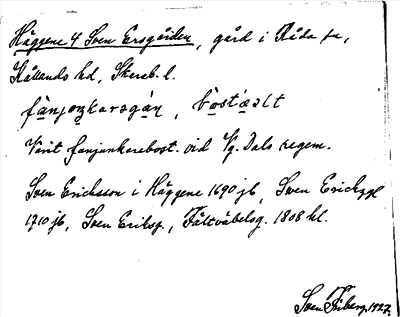 Häggene 4 Sven Ersgården, gård i Råda sn,
Kållands hd, Skarab. l.
fanjoŋkarsgán, bóstäalt
Varit fanjunkarebost. vid Vg. Dals regem.
Sven Ericksson i Häggene 1690 jb, Swen Erichzgl
1710 jb, Sven Eriksg., Fältväbelsg. 1808 hl.
Sven Friberg 1927.